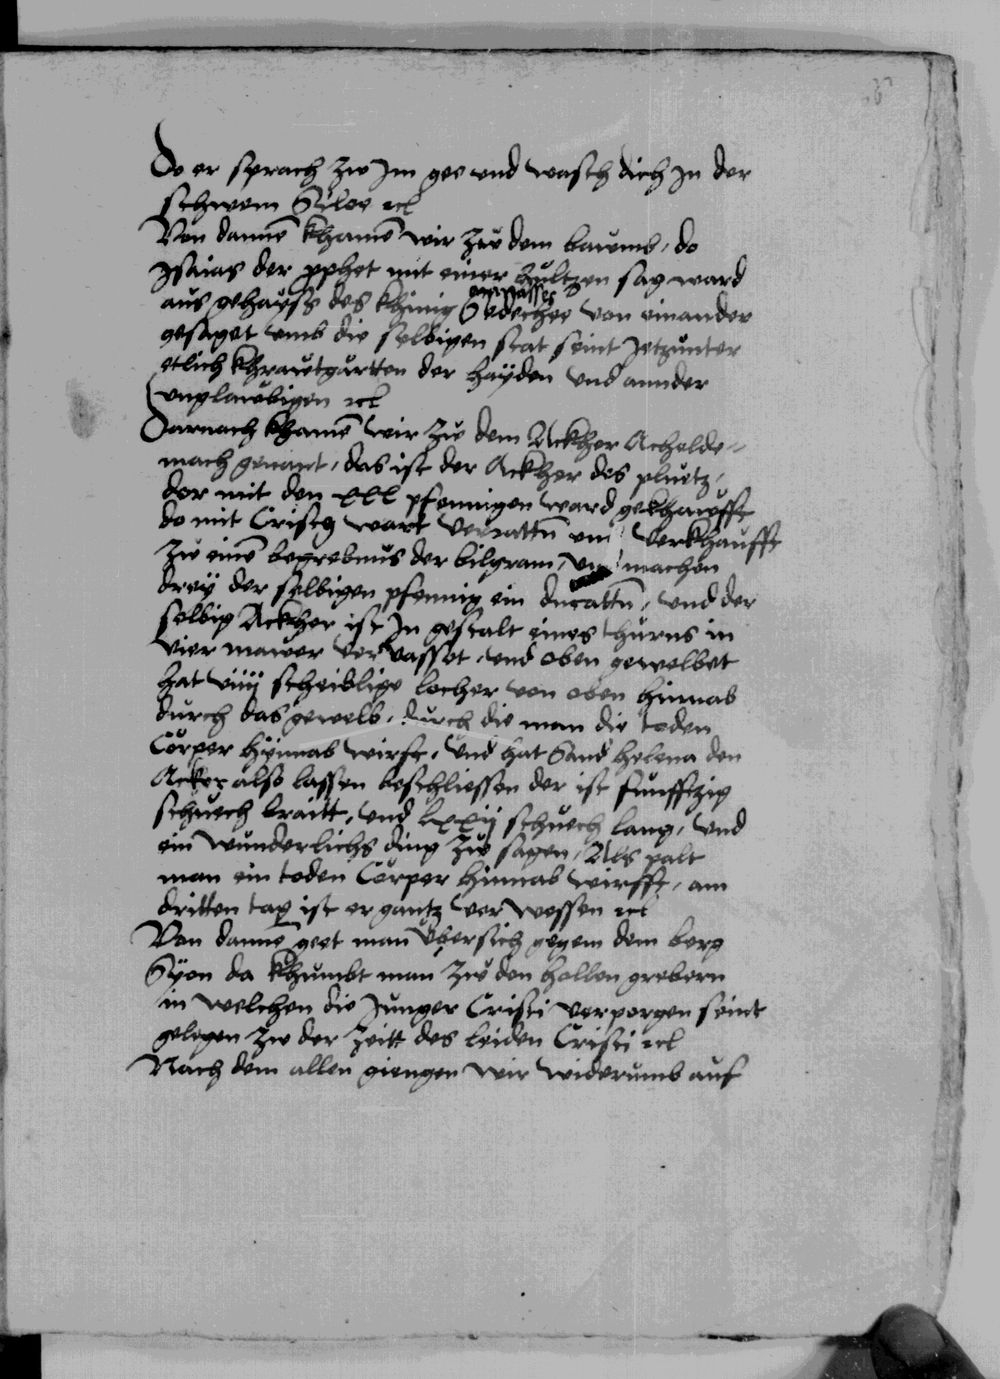 Do er sprach zw Im gee vnd wasch dich In der
schwem Syloe etc
Von dannē khamē wir zw dem baumb, do
Isaias der pphet mit einer hultzen sag ward
manasses
aus gehayss des khinig Sedechee von einander
gesaget vmb die selbigen stat seint Ietzunter
etlich khrautgartten der hayden vnd annder
vnglaubigen etc
Darnach khamē wir zw dem Ackher Achelde-
mach genant, das ist der Ackher des pluetz,
der mit den xxx pfennigen ward gekhaufft
do mit Cristg wart verrattn vnd verkhaufft
zw einē begrebnus der bilgram, machen
drey der selbigen pfennig ein ducattn, vnd der
selbig Ackher ist In gestalt eines thurns in
vier mawer vervasset, vnd oben gewelbet
hat viiij scheiblige locher von oben hinnab
durch das gewelb, durch die man die toden
Corper hynnab wirft, vnd hat Sand helena den
Acker also lassen beschliessen der ist funfftzig
schuech braitt, vnd lxxij schuech lang, vnd
ein wunderlichs ding zw sagen, Als palt
man ein toden Corper hinnab wirfft, am
dritten tag ist er gantz verwessen etc
Von dannē geet man vbersich gegem dem berg
Syon da khumbt man zw den hollen grebern
in welchen die Junger Cristi verporgen seint
gelegen zw der zeitt des leiden Cristi etc
Nach dem allen giengen wir widerumb auf